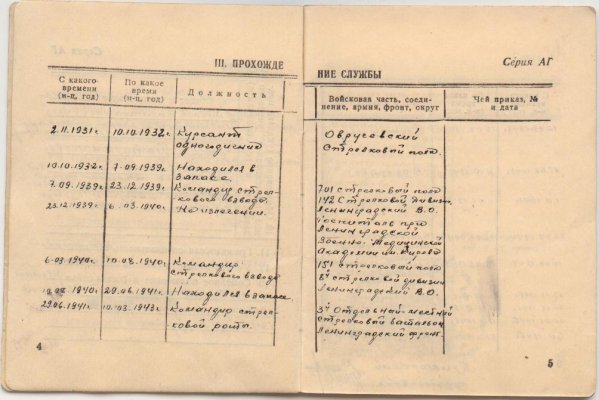 III. ПРОХОЖДЕ
С какого времени (м-ц, год)
По какое время (м-ц, год)
Должность
2.11.1931г. 10.10.1932г. Курсант
одногодичник
10.10.1932г. 7.09.1939г. Находился в
запасе.
7.09.1939г. 23.12.1939г. Командир стрел-
кового взвода.
23.12.1939г. 6.03.1940г. На излечении.
6.03.1940г. 10.08.1940г. Командир
стрелкового взвода
10.08.1940г. 29.06.1941г. Находился в запасе.
29.06.1941г. 10.03.1943г. Командир стрел-
ковой роты.
4
Серия АГ
НИЕ СЛУЖБЫ
Войсковая часть, соеди-
нение, армия, фронт, округ
Чей приказ, №
и дата
Стрелковый полк.
701 стрелковый полк
142 Стрелковой дивизии
Ленинградский В.О.
Госпиталь при
Ленинградской
Военно-Медицинской
Академии им. Кирова
151 стрелковый полк
8й стрелковой дивизии
Ленинградский В.О.
3й Отдельный
стрелковый батальон
Ленинградский фронт.
5